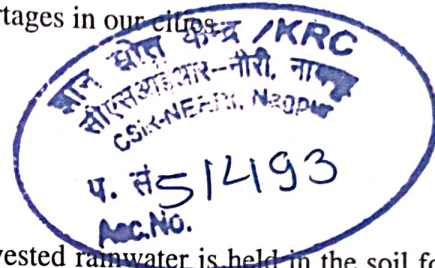 rtages in our cities.
ज्ञान स्रोत केन्द्र /KRC
सीएसआईआर-नीरी, नागपूर
CSIR-NEERI, Nagpur
प. सं 51493
Acc.No.
vested rainwater is held in the soil fo